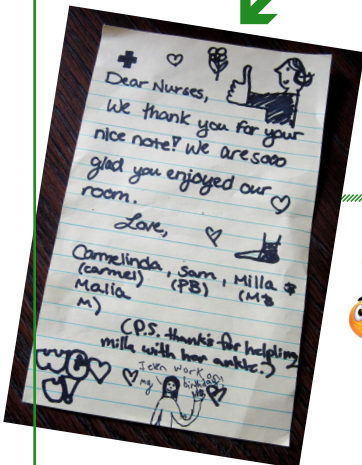 Dear Nurses,
We thank you for your
nice note! We are sooo
glad you enjoyed our
room.
Love,
Carmelinda, Sam, Milla &
(Carmel) (PB) (M&
Malia M)
(P.S. thanks for helping
milla with her ankle.)
I even work on
my birthday
WE
U!